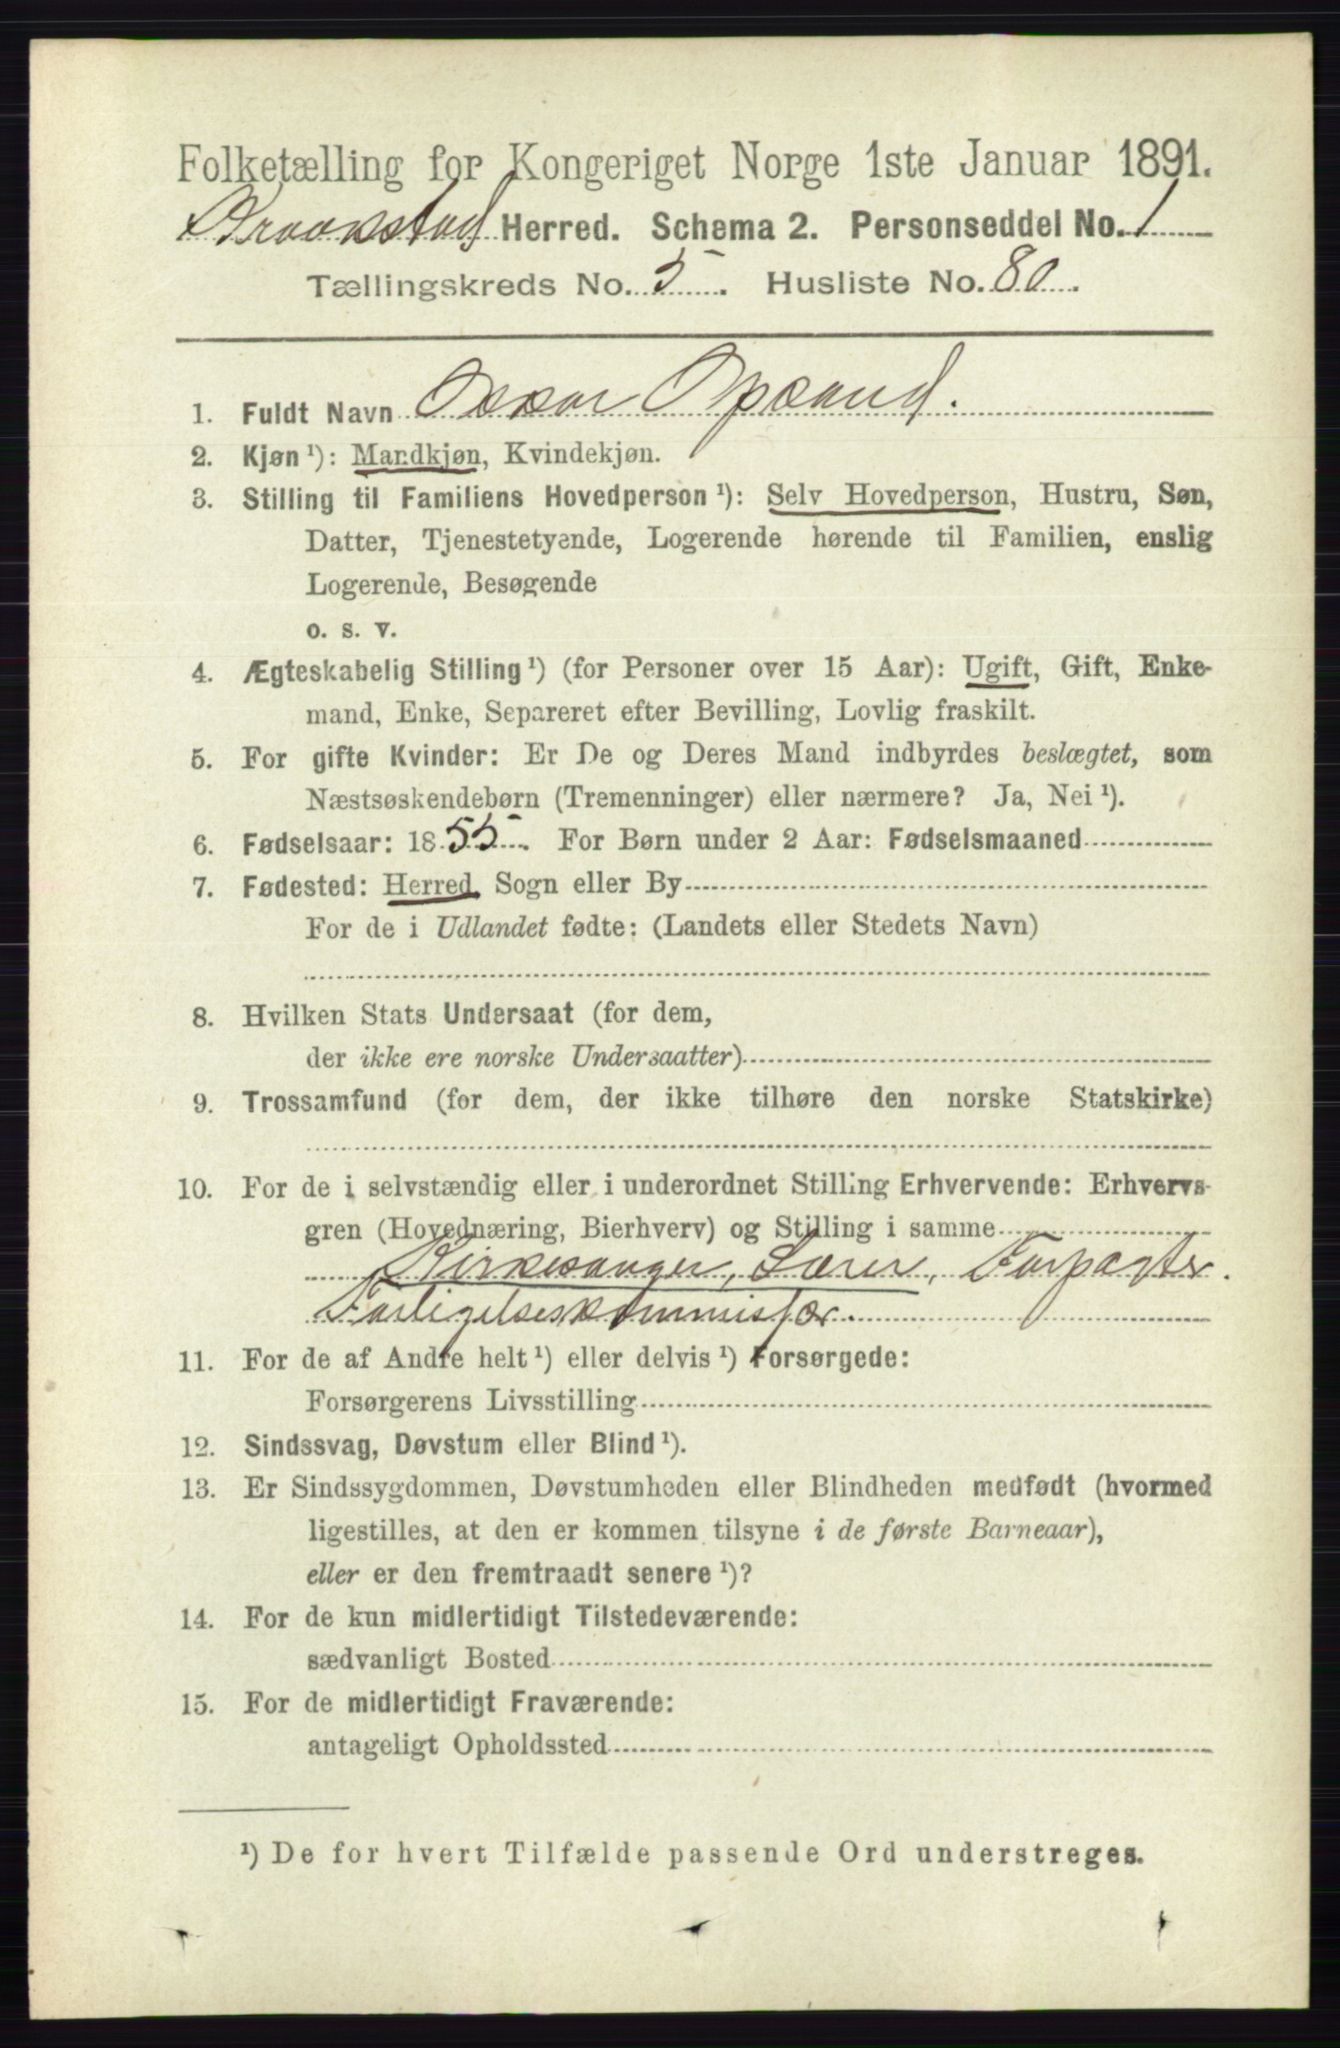 Folketælling for Kongeriget Norge 1ste Januar 1891.
Kraakstad Herred. Schema 2. Personseddel No. 1
Tællingskreds No. 5. Husliste No. 80.
1. Fuldt Navn Oskar Opsand.
2. Kjøn ¹): Mandkjøn, Kvindekjøn.
3. Stilling til Familiens Hovedperson ¹): Selv Hovedperson, Hustru, Søn,
Datter, Tjenestetyende, Logerende hørende til Familien, enslig
Logerende, Besøgende
o. s. v.
4. Ægteskabelig Stilling ¹) (for Personer over 15 Aar): Ugift, Gift, Enke-
mand, Enke, Separeret efter Bevilling, Lovlig fraskilt.
5. For gifte Kvinder: Er De og Deres Mand indbyrdes beslægtet, som
Næstsøskendebørn (Tremenninger) eller nærmere? Ja, Nei ¹).
6. Fødselsaar: 1855. For Børn under 2 Aar: Fødselsmaaned
7. Fødested: Herred, Sogn eller By
For de i Udlandet fødte: (Landets eller Stedets Navn)
8. Hvilken Stats Undersaat (for dem,
der ikke ere norske Undersaatter)
9. Trossamfund (for dem, der ikke tilhøre den norske Statskirke)
10. For de i selvstændig eller i underordnet Stilling Erhvervende: Erhvervs-
gren (Hovednæring, Bierhverv) og Stilling i samme
Kirkesanger, Lærer, Forpagter.
Forligelseskommissær.
11. For de af Andre helt ¹) eller delvis ¹) Forsørgede:
Forsørgerens Livsstilling
12. Sindssvag, Døvstum eller Blind ¹).
13. Er Sindssygdommen, Døvstumheden eller Blindheden medfødt (hvormed
ligestilles, at den er kommen tilsyne i de første Barneaar),
eller er den fremtraadt senere ¹)?
14. For de kun midlertidigt Tilstedeværende:
sædvanligt Bosted
15. For de midlertidigt Fraværende:
antageligt Opholdssted
¹) De for hvert Tilfælde passende Ord understreges.